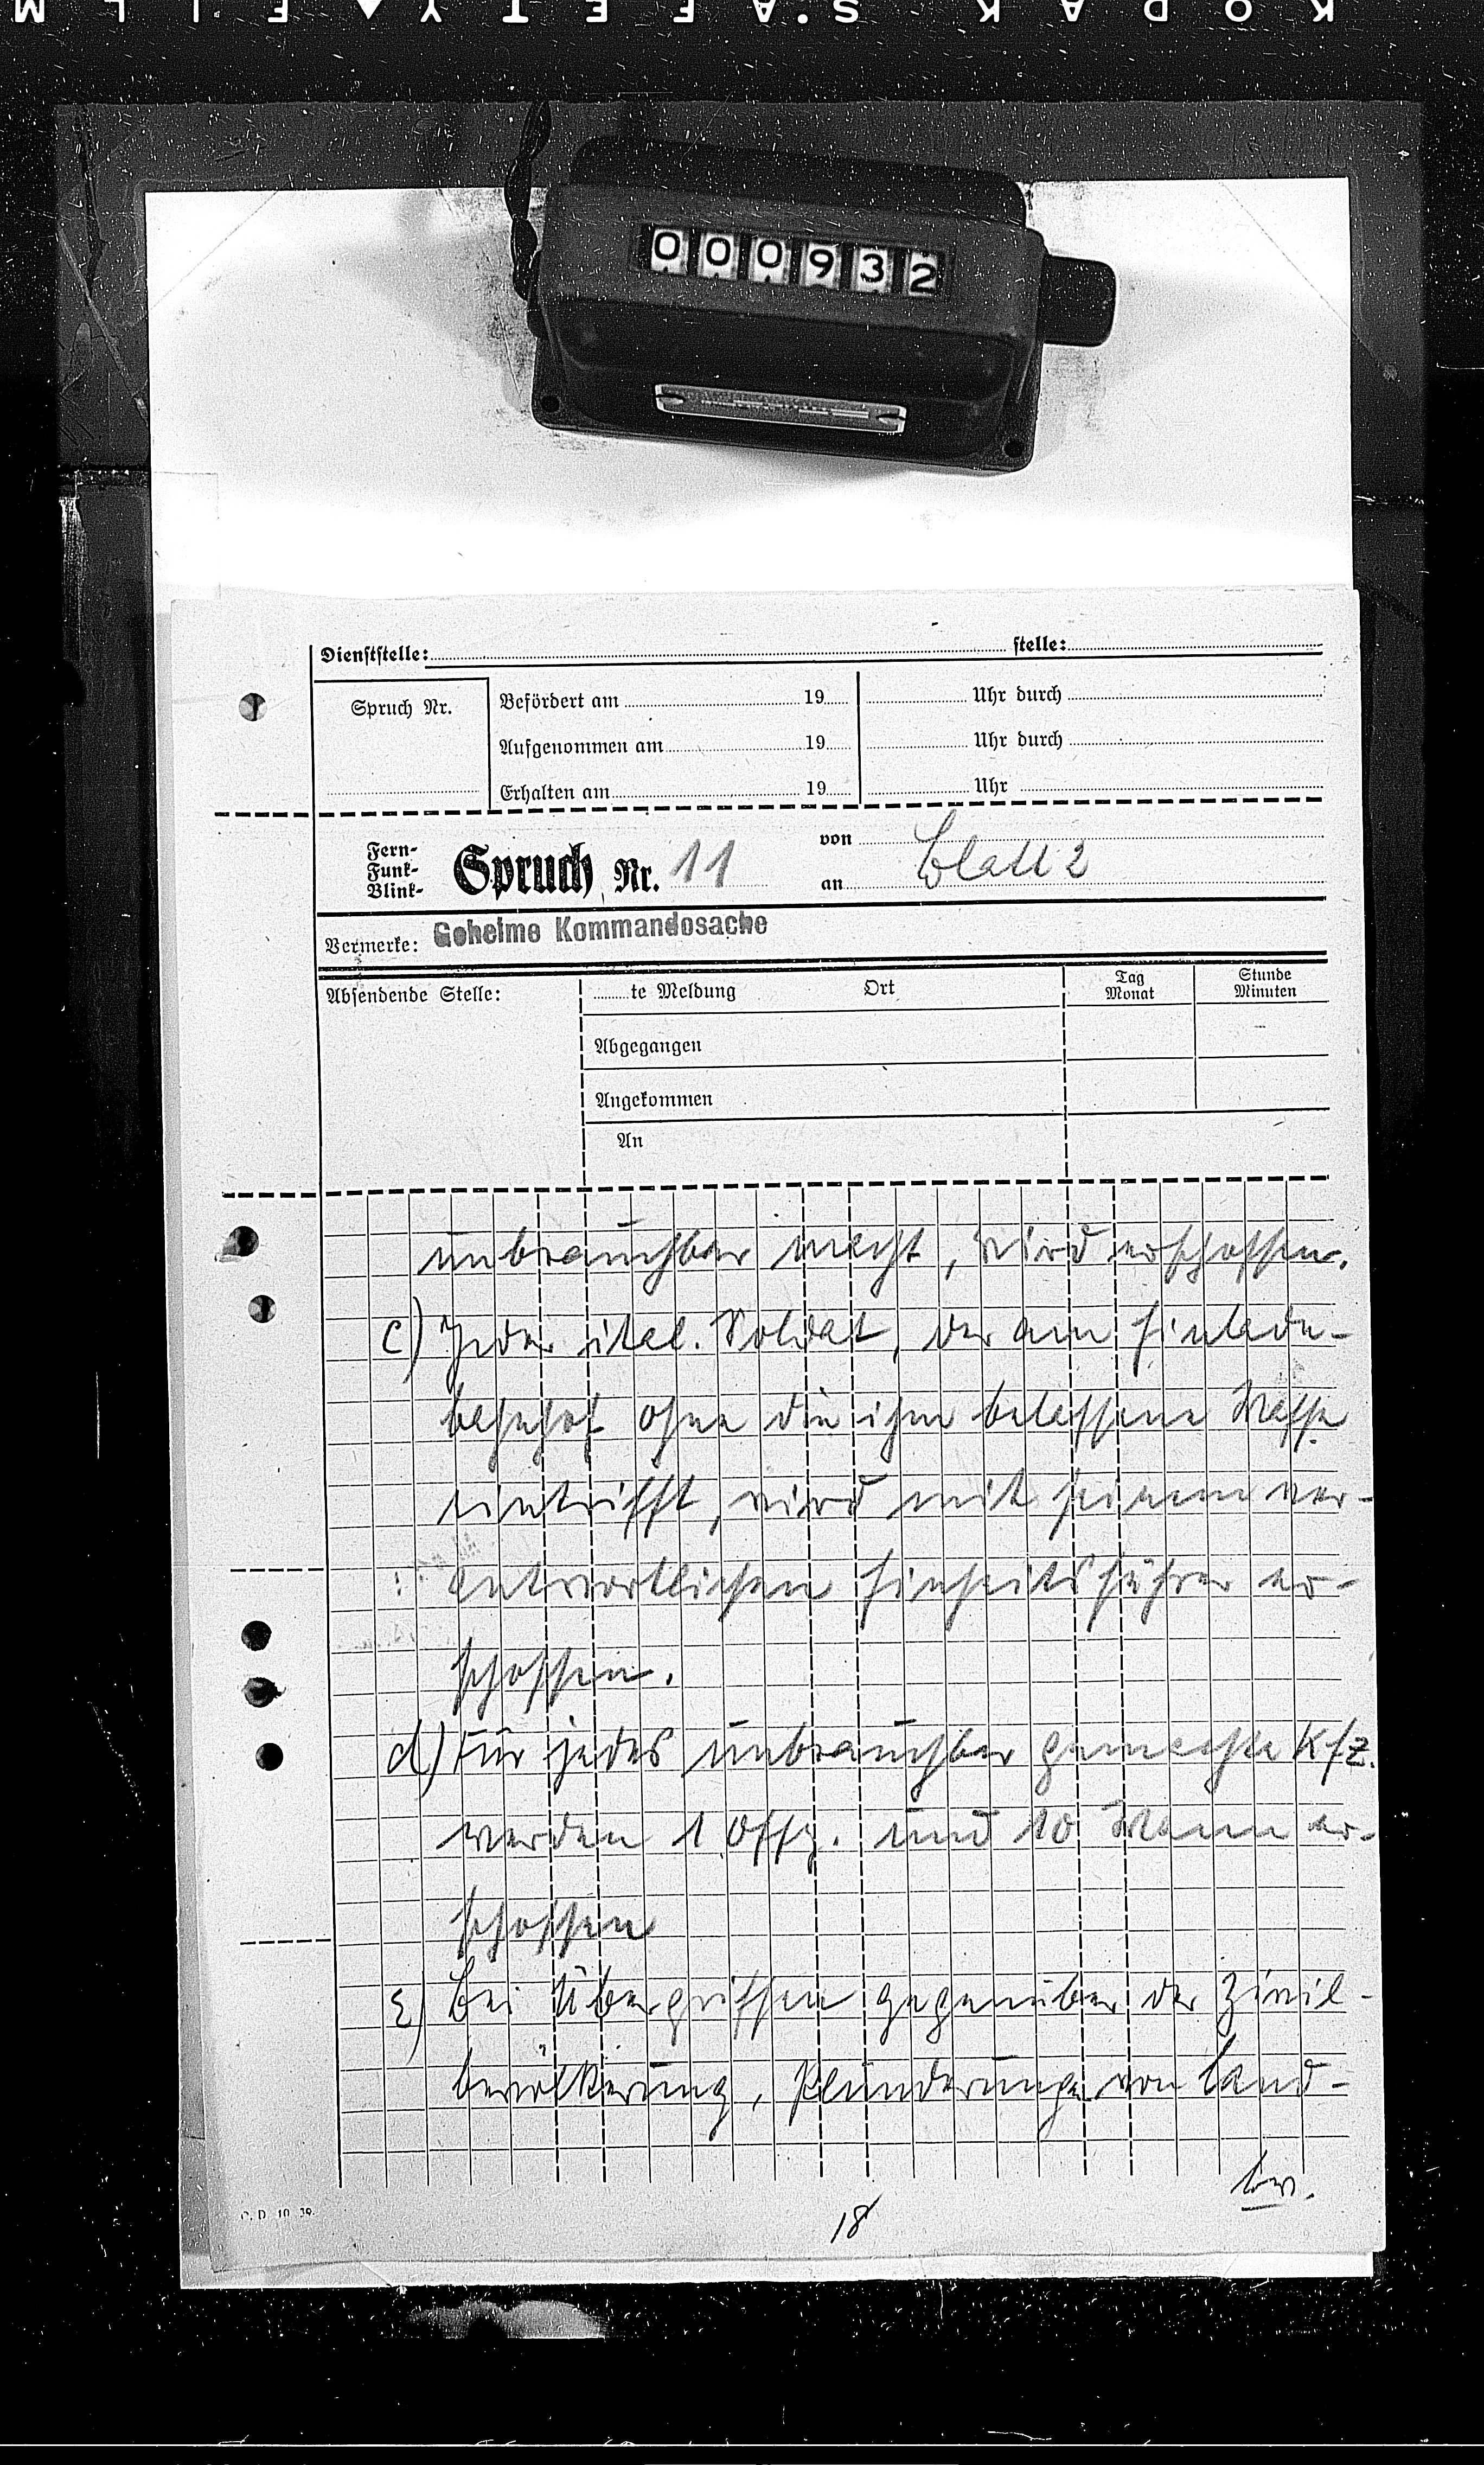 KODAK SAFETY FILM
000932
Dienststelle: stelle:
Spruch Nr.
Befördert am 19 Uhr durch
Aufgenommen am 19 Uhr durch
Erhalten am 19 Uhr
Fern-
Funk-
Blink-
Spruch Nr. 11
von
an
Blatt 2
Vermerke: Geheime Kommandosache
Absendende Stelle:
te Meldung Ort Tag Monat Stunde Minuten
Abgegangen
Angekommen
An
unbrauchbar macht, wird erschossen.
c) Jeder ital. Soldat, der am Einlade-
bahnhof ohne die ihm belassene Waffe
eintrifft, wird mit seinem ver-
antwortlichen Einheitsführer er-
schossen.
d) Für jedes unbrauchbar gemachte Kfz.
werden 1 Offz. und 10 Mann er-
schossen
e) Bei Übergriffen gegenüber der Zivil-
bevölkerung, Plünderungen von Land-
18